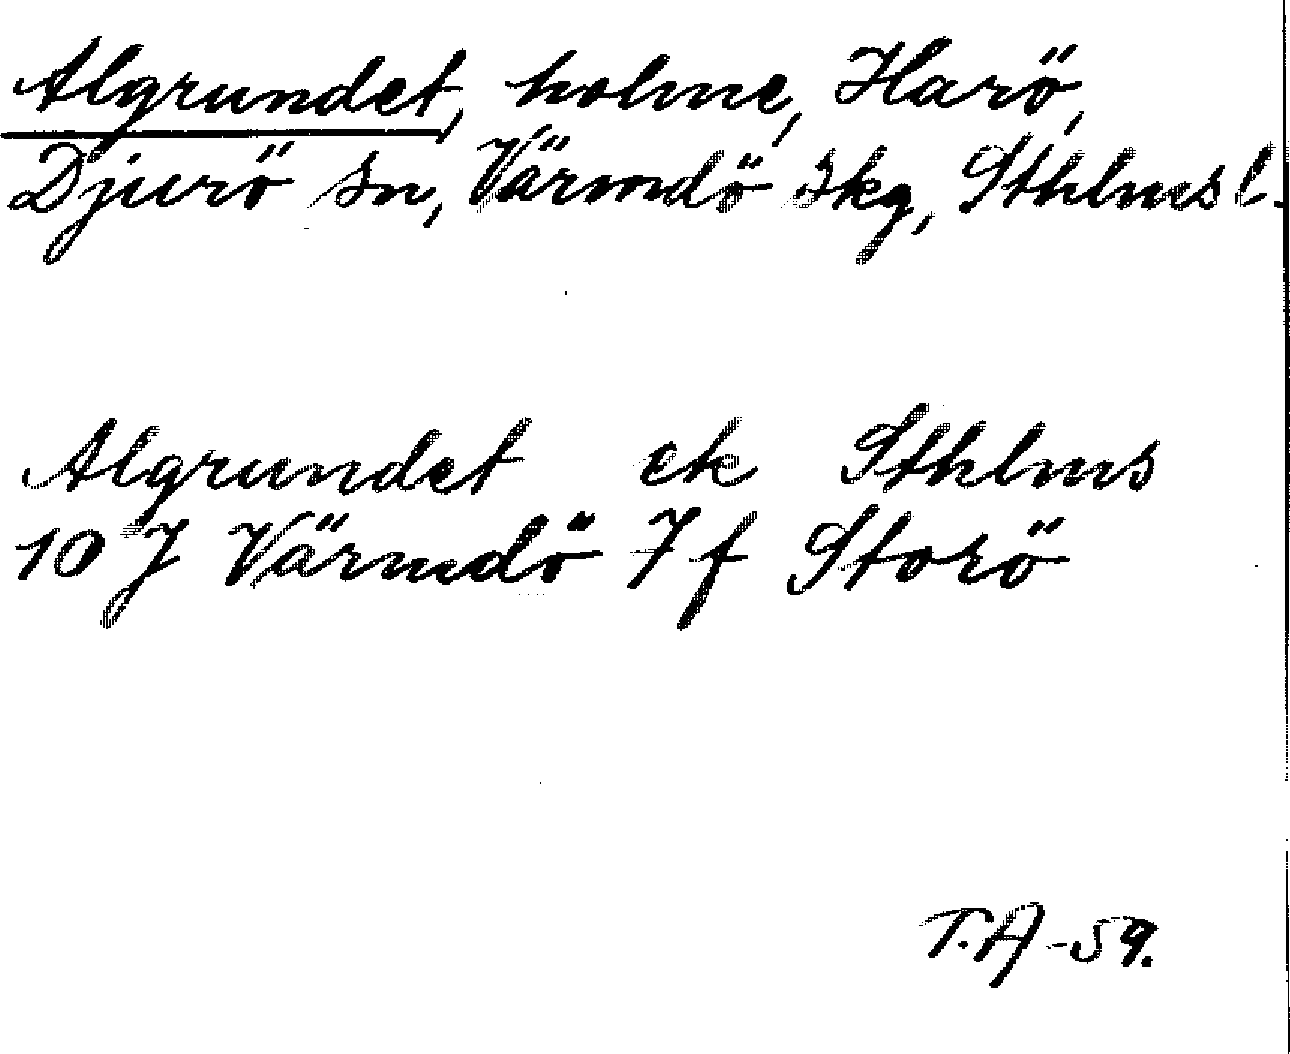 Algrundet, holme, Harö,
Djurö sn, Värmdö skg, Sthlms l.
Algrundet ek Sthlms
10 J Värmdö 7 f Storö
T.A -59.